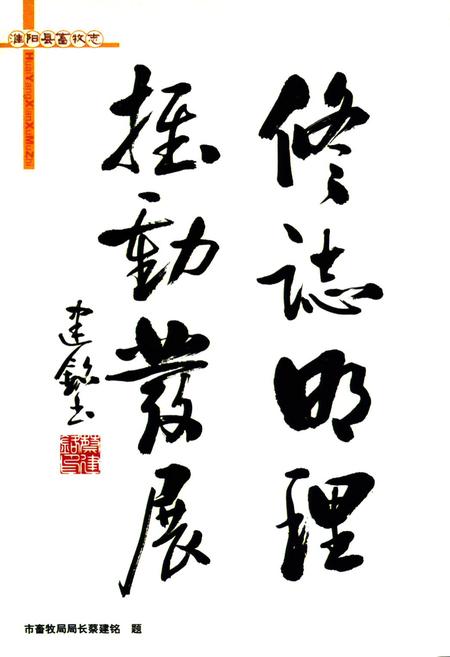 淮阳县畜牧志
HuaiYangXianXuMuZhi
修誌明理
推動發展
建銘书
蔡建銘印
市畜牧局局长蔡建铭 题